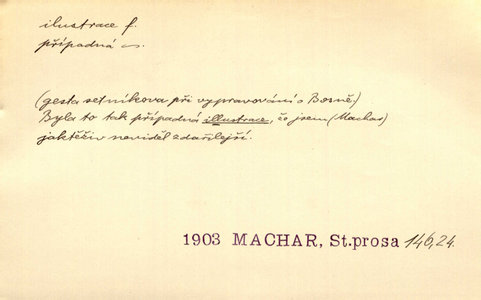 ilustrace f.
případná
(gesta setníkova při vypravování o Bosně.)
Byla to tak případná illustrace, čo jsem (Machar)
jaktěživ neviděl zdařilejší.
1903 MACHAR, St.prosa 146,24.